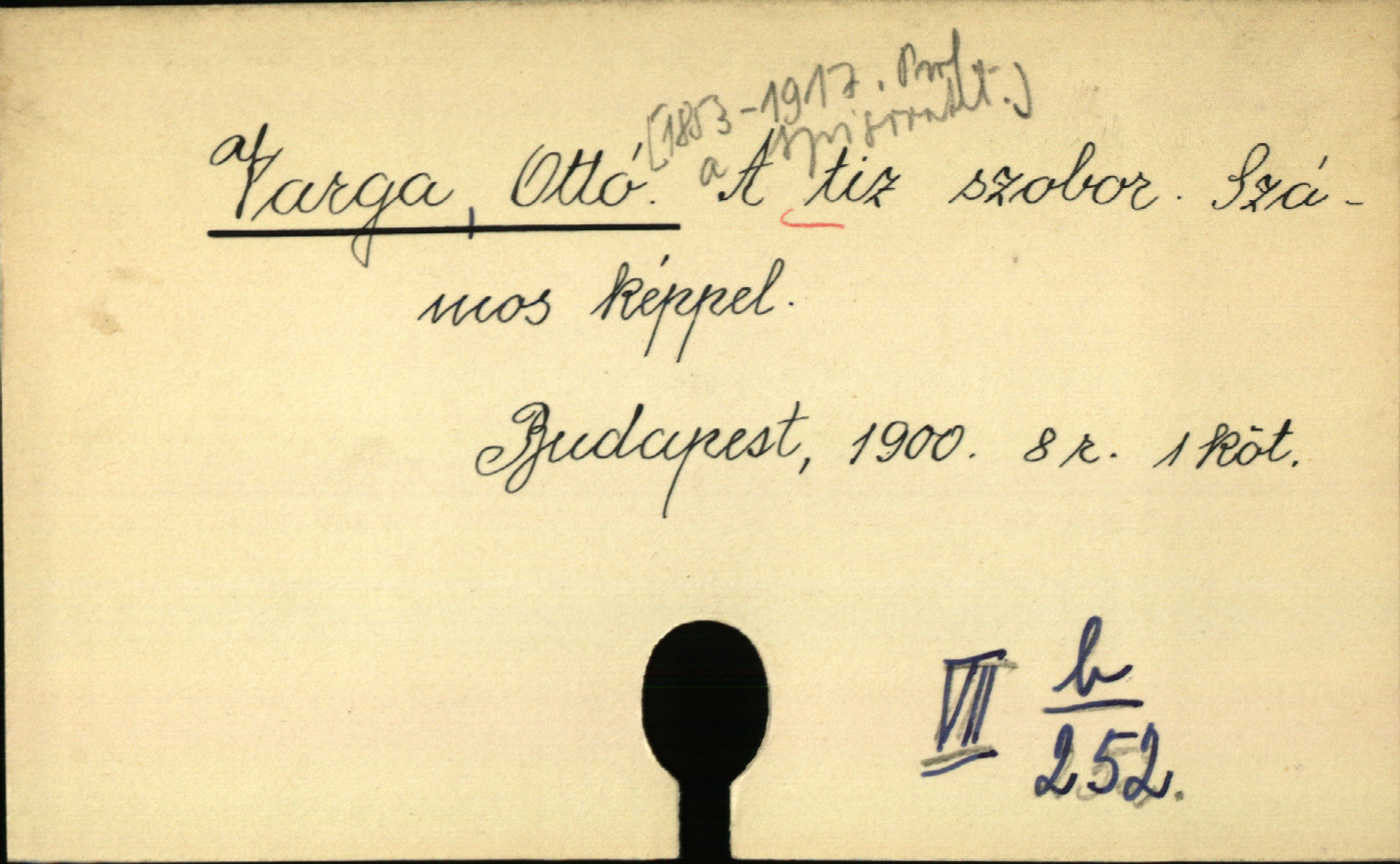 [1853-1917. Prof.
a
Varga, Ottó. A tiz szobor. Szá-
mos képpel.
Budapest, 1900. 8 r. 1 köt.
VII b
252.